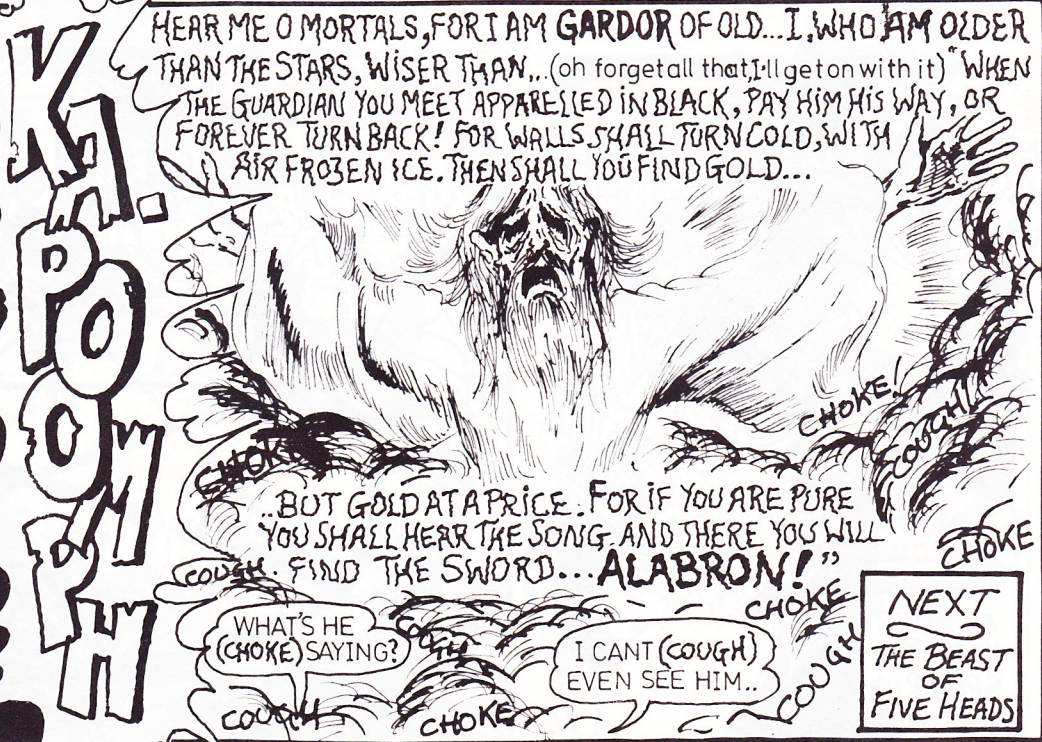 KA-
POOMPH
HEAR ME O MORTALS, FOR I AM GARDOR OF OLD... I, WHO AM OLDER
THAN THE STARS, WISER THAN... (oh forget all that, I'll get on with it) "WHEN
THE GUARDIAN YOU MEET APPARELLED IN BLACK, PAY HIM HIS WAY, OR
FOREVER TURN BACK! FOR WALLS SHALL TURN COLD, WITH
AIR FROZEN ICE. THEN SHALL YOU FIND GOLD...
CHOKE!
COUGH!
CHOKE
...BUT GOLD AT A PRICE. FOR IF YOU ARE PURE
YOU SHALL HEAR THE SONG. AND THERE YOU WILL
FIND THE SWORD... ALABRON!"
CHOKE
COUGH
CHOKE
COUGH
WHAT'S HE
(CHOKE) SAYING?
COUGH
I CANT (COUGH)
EVEN SEE HIM..
COUGH
CHOKE
NEXT
THE BEAST
OF
FIVE HEADS